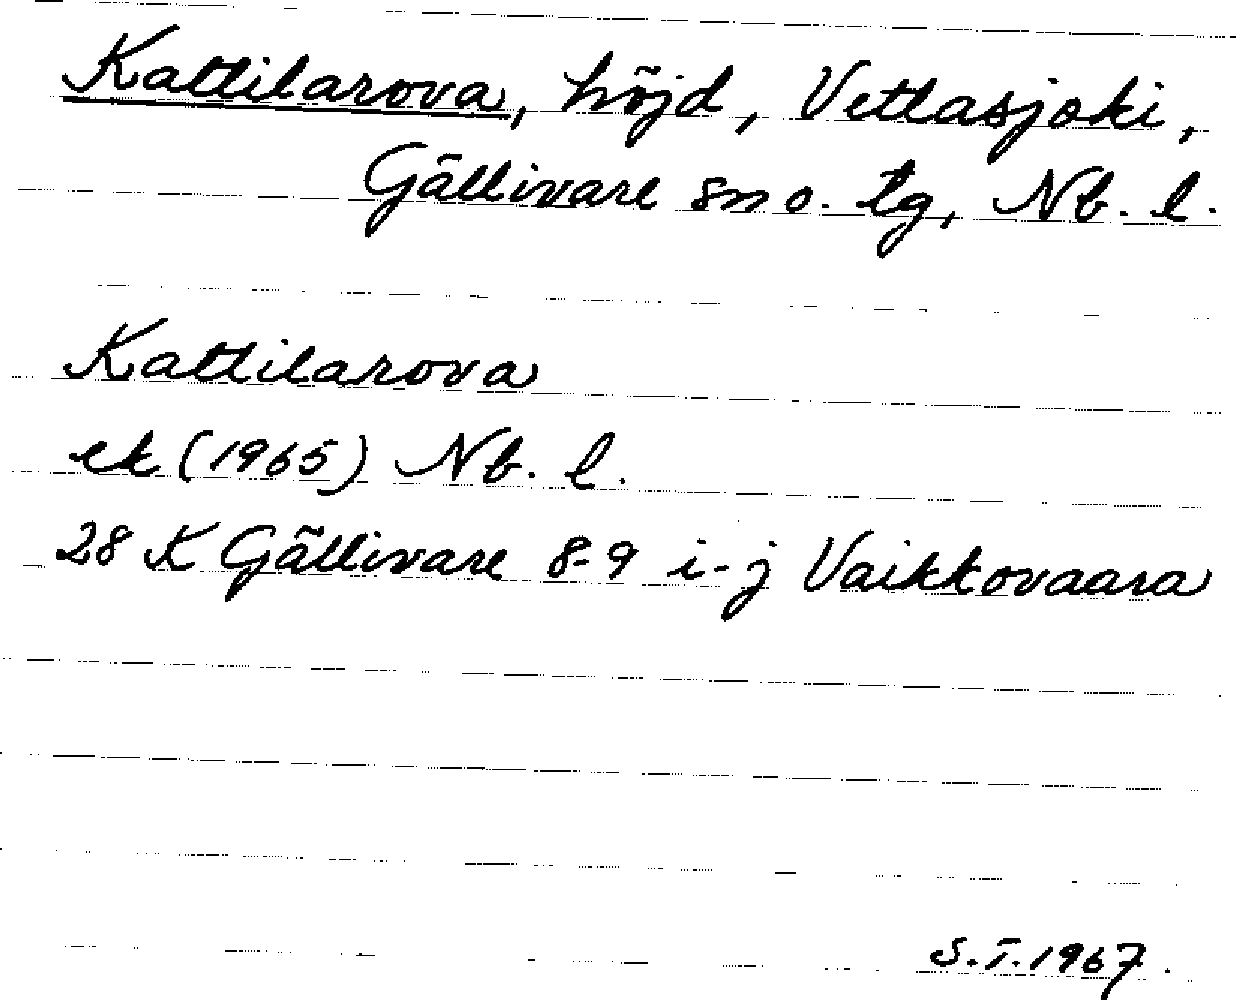 Kattilarova, höjd, Vettasjoki,
Gällivare sn o. tg, Nb. l.
Kattilarova
ek (1965) Nb. l.
28 K Gällivare 8-9 i-j Vaikkovaara
S.T. 1967.